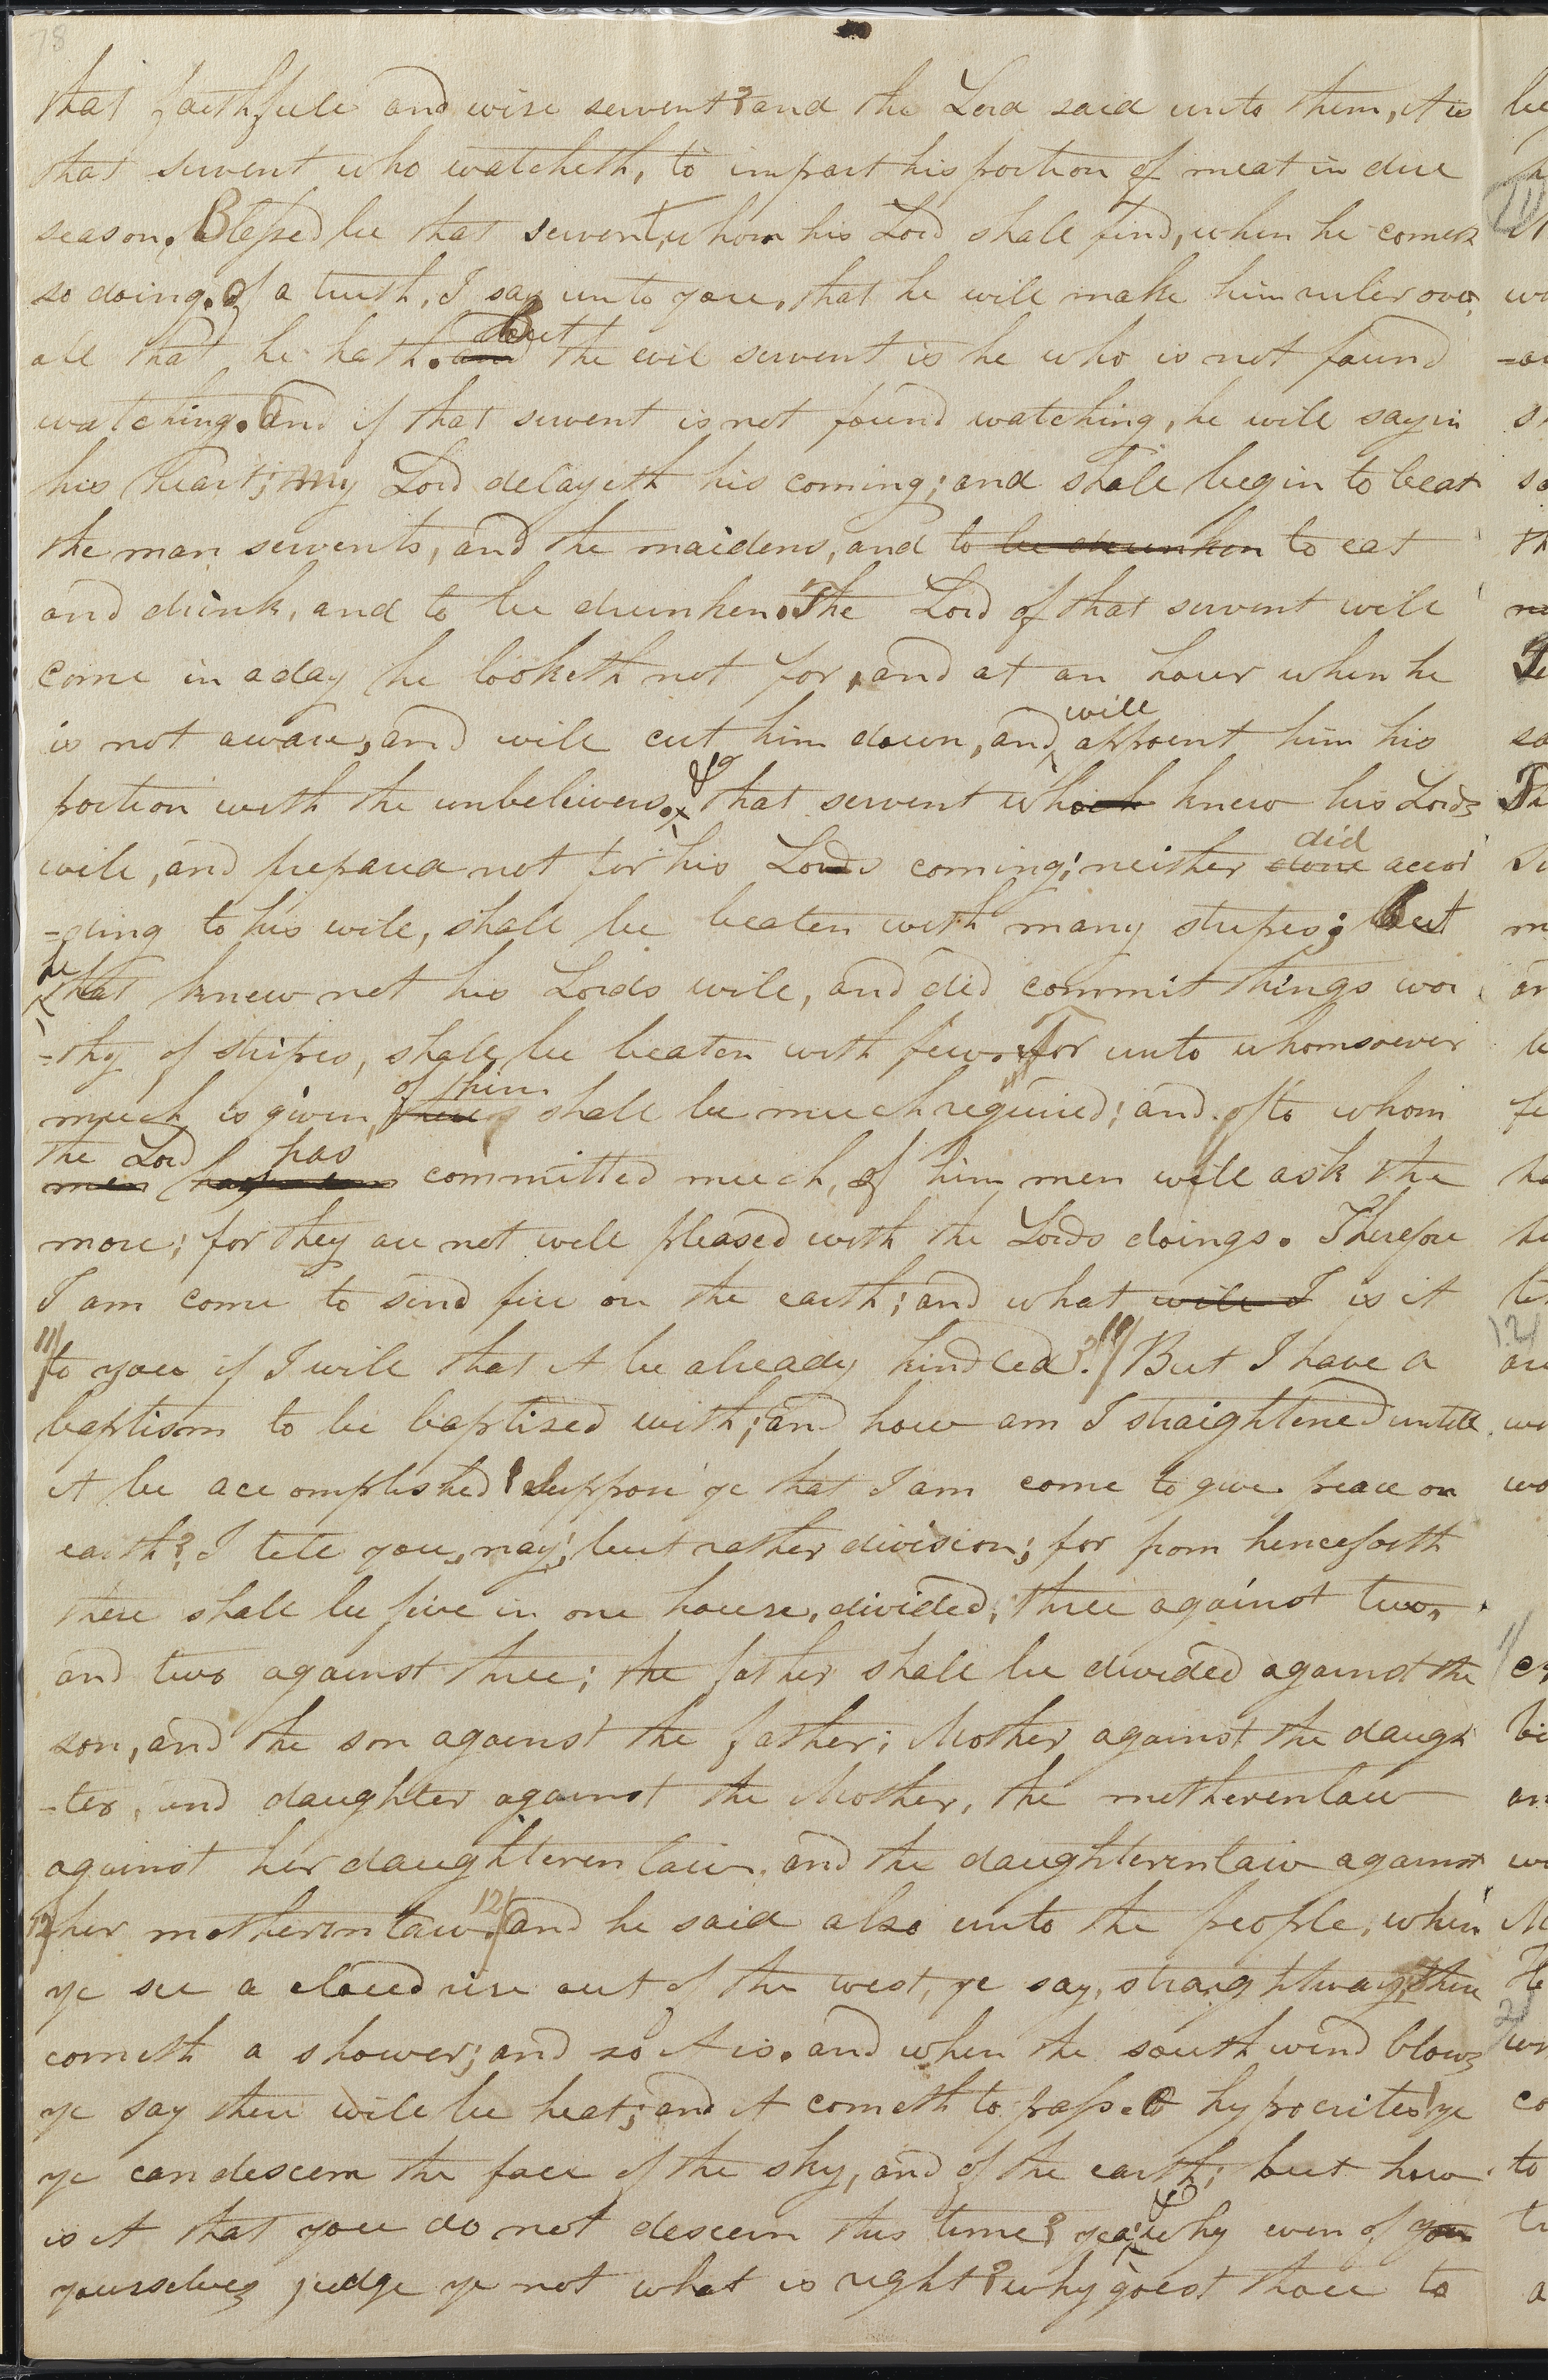 78
that faithfull and wise servent? and the Lord said unto them, it is
that servent who watcheth, to impart his portion of meat in due
season. Blessed be that servent, whom his Lord shall find, when he comes
so doing. Of a truth, I say unto you, that he will make him ruler over
all that he hath. and but the evil servent is he who is not found
watching. And if that servent is not found watching, he will say in
his heart; my Lord delayeth his coming; and shall begin to beat
the man servents, and the maidens, and to be drunken to eat
and drink, and to be drunken. The Lord of that servent will
come in a day he looketh not for, and at an hour when he
is not aware, and will cut him down, and will appoint him his
portion with the unbelivers. & that servent who knew his Lords
will, and prepared not for his Lords coming; neither done did accor
=ding to his will, shall be beaten with many stripes; But
he that knew not his Lords will, and did commit things wor
=thy of stripes, shall be beaten with few. For unto whomsoever
much is given, of him shall be much required; and to whom
men the Lord has committed much, of him men will ask the
more; for they are not well pleased with the Lords doings. Therefore
I am come to send fire on the earth; and what will I is it
11/ to you if I will that it be already kindled? 11/ But I have a
baptism to be baptized with; and how am I straightened untill
it be accomplished! Suppose ye that I am come to give peace on
earth? I tell you, nay; but rather division; for from henceforth
there shall be five in one house, divided; three against two,
and two against three; the father shall be divided against the
son, and the son against the father; Mother against the daugh
-ter, and daughter against the Mother, the motherenlaw
against her daughterenlaw, and the daughterenlaw against
12/ her motherenlaw. 12/ And he said also unto the people, when
ye see a cloud rise out of the west, ye say, straightway, there
cometh a shower; and so it is. and when the south wind blows
ye say there will be heat; and it cometh to pass. O hypocrites! ye
ye can descern the face of the sky, and of the earth; but how
is it that you do not descern this time? yea, & why even of you
yourselves judge ye not what is right? why goest thou to